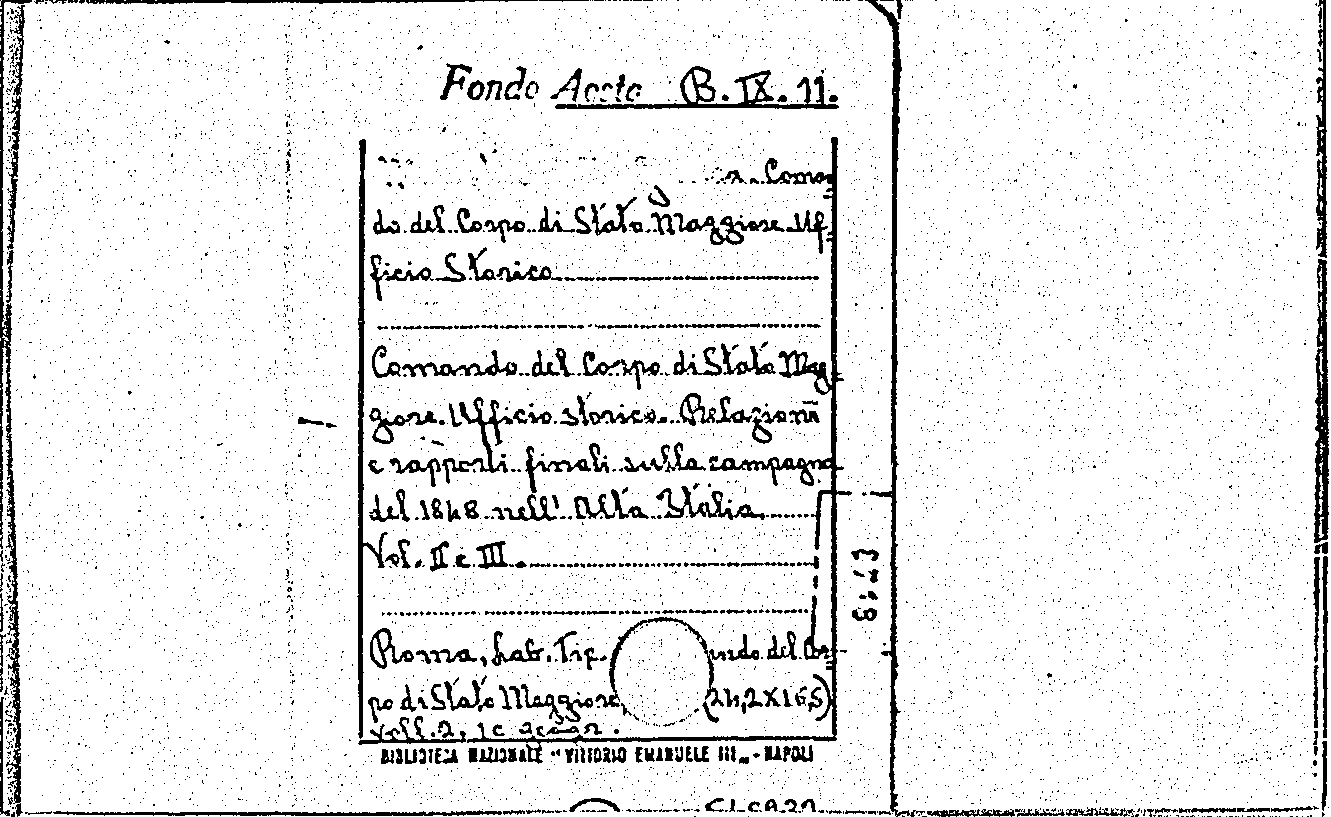 Fondo Aosta B. IX. 11.
Coman=
do del Corpo di Stato Maggiore Uf=
ficio Storico
Comando del Corpo di Stato Mag-
giore. Ufficio storico. Relazioni
e rapporti finali sulla campagna
del 1848 nell' Alta Italia.
Vol. II e III.
Roma, Lab. Tip. ndo del Cor=
po di Stato Maggiore, (24,2X16,5)
voll. 2, 1c
BIBLIOTECA NAZIONALE "VITTORIO EMANUELE III" - NAPOLI